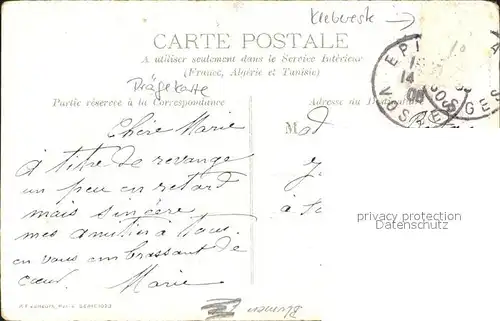 Klebereste
CARTE POSTALE
A utiliser seulement dans le Service Intérieur
(France, Algérie et Tunisie)
Prägekarte
Partie réservée à la Correspondance
Adresse du Destinataire
EPI
VOSGES
14
Chère Marie
A titre de revanche
un peu en retard
mais sincère
mes amitiés à tous
en vous embrassant de
cœur. Marie
M
à
privacy protection
datenschutz
Blumen